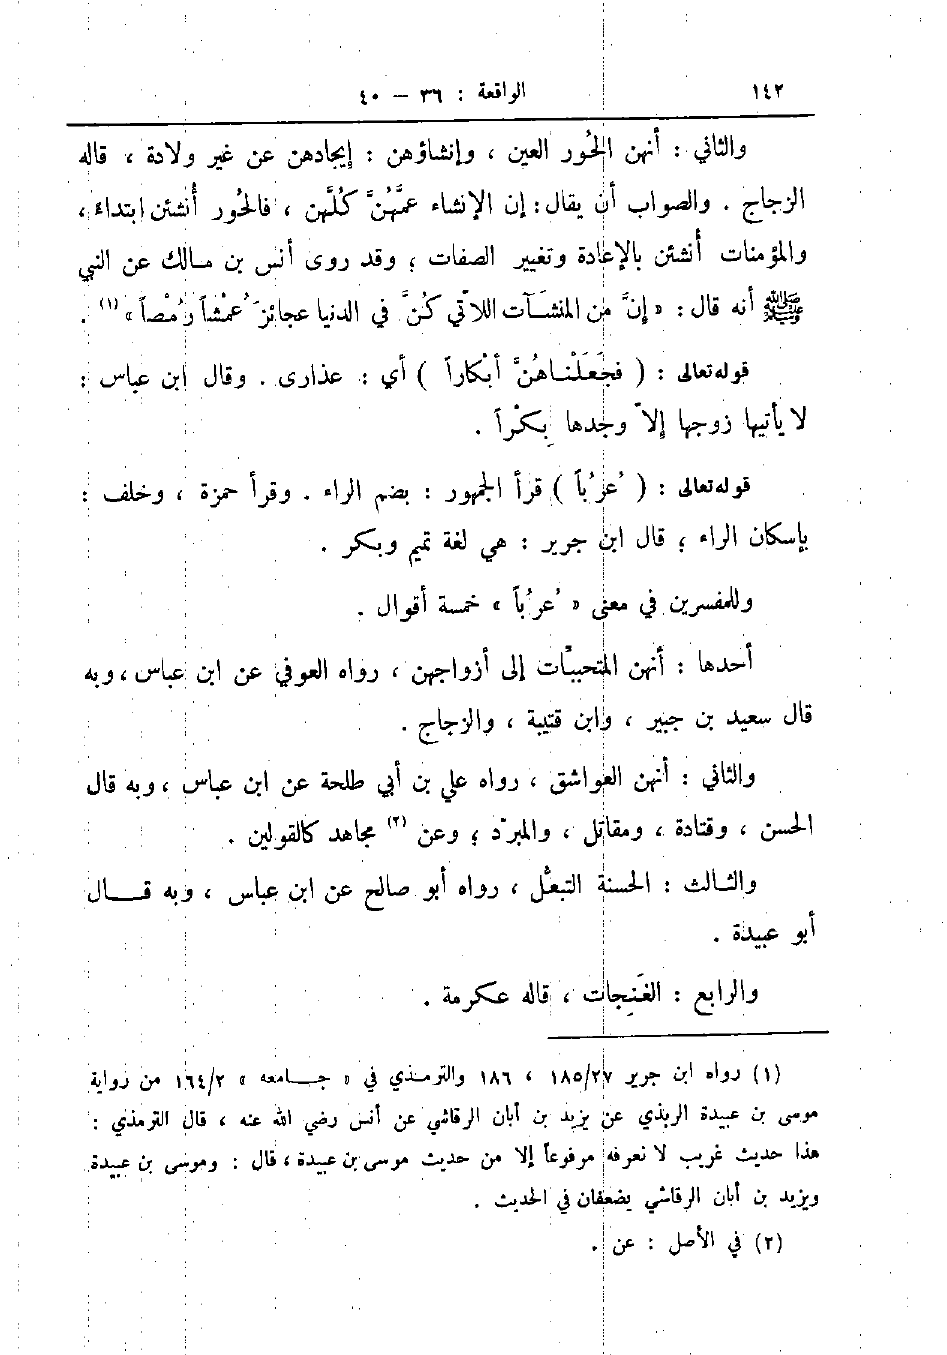 ١٤٢
الواقعة : ٣٦ – ٤٠
والثاني : أنهن الحُور العين ، وإنشاؤهن : إيجادهن عن غير ولادة ، قاله
الزجاج . والصواب أن يقال : إن الإنشاء عمَّهُنَّ كلَّهن ، فالحُور أُنشئن ابتداءً ،
والمؤمنات أُنشئن بالإعادة وتغيير الصفات ؛ وقد روى أنس بن مالك عن النبي
ﷺ أنه قال : « إنَّ من المنشَآت اللاّتي كنَّ في الدنيا عجائزَ عُمْشاً رُمْصاً » (١) .
قوله تعالى : ( فجَعَلْنـاهُنَّ أبْكاراً ) أي : عذارى . وقال ابن عباس :
لا يأتيها زوجها إلاّ وجدها بِكْراً .
قوله تعالى : ( عُرُباً ) قرأ الجمهور : بضم الراء . وقرأ حمزة ، وخلف :
بإسكان الراء ؛ قال ابن جرير : هي لغة تميم وبكر .
وللمفسرين في معنى « عُرُباً » خمسة أقوال .
أحدها : أنهن المتحببِّات إلى أزواجهن ، رواه العوفي عن ابن عباس ، وبه
قال سعيد بن جبير ، وابن قتيبة ، والزجاج .
والثاني : أنهن العواشق ، رواه علي بن أبي طلحة عن ابن عباس ، وبه قال
الحسن ، وقتادة ، ومقاتل ، والمبرّد ؛ وعن (٢) مجاهد كالقولين .
والثـالث : الحسنة التبعُّل ، رواه أبو صالح عن ابن عباس ، وبه قـــال
أبو عبيدة .
والرابع : الغَنِجات ، قاله عكرمة .
(١) رواه ابن جرير ١٨٥/٢٧ ، ١٨٦ والترمـذي في « جـــامعه » ١٦٤/٢ من رواية
موسى بن عبيدة الربذي عن يزيد بن أبان الرقاشي عن أنس رضي الله عنه ، قال الترمذي :
هذا حديث غريب لا نعرفه مرفوعاً إلا من حديث موسى بن عبيدة ، قال : وموسى بن عبيدة
ويزيد بن أبان الرقاشي يضعفان في الحديث .
(٢) في الأصل : عن .